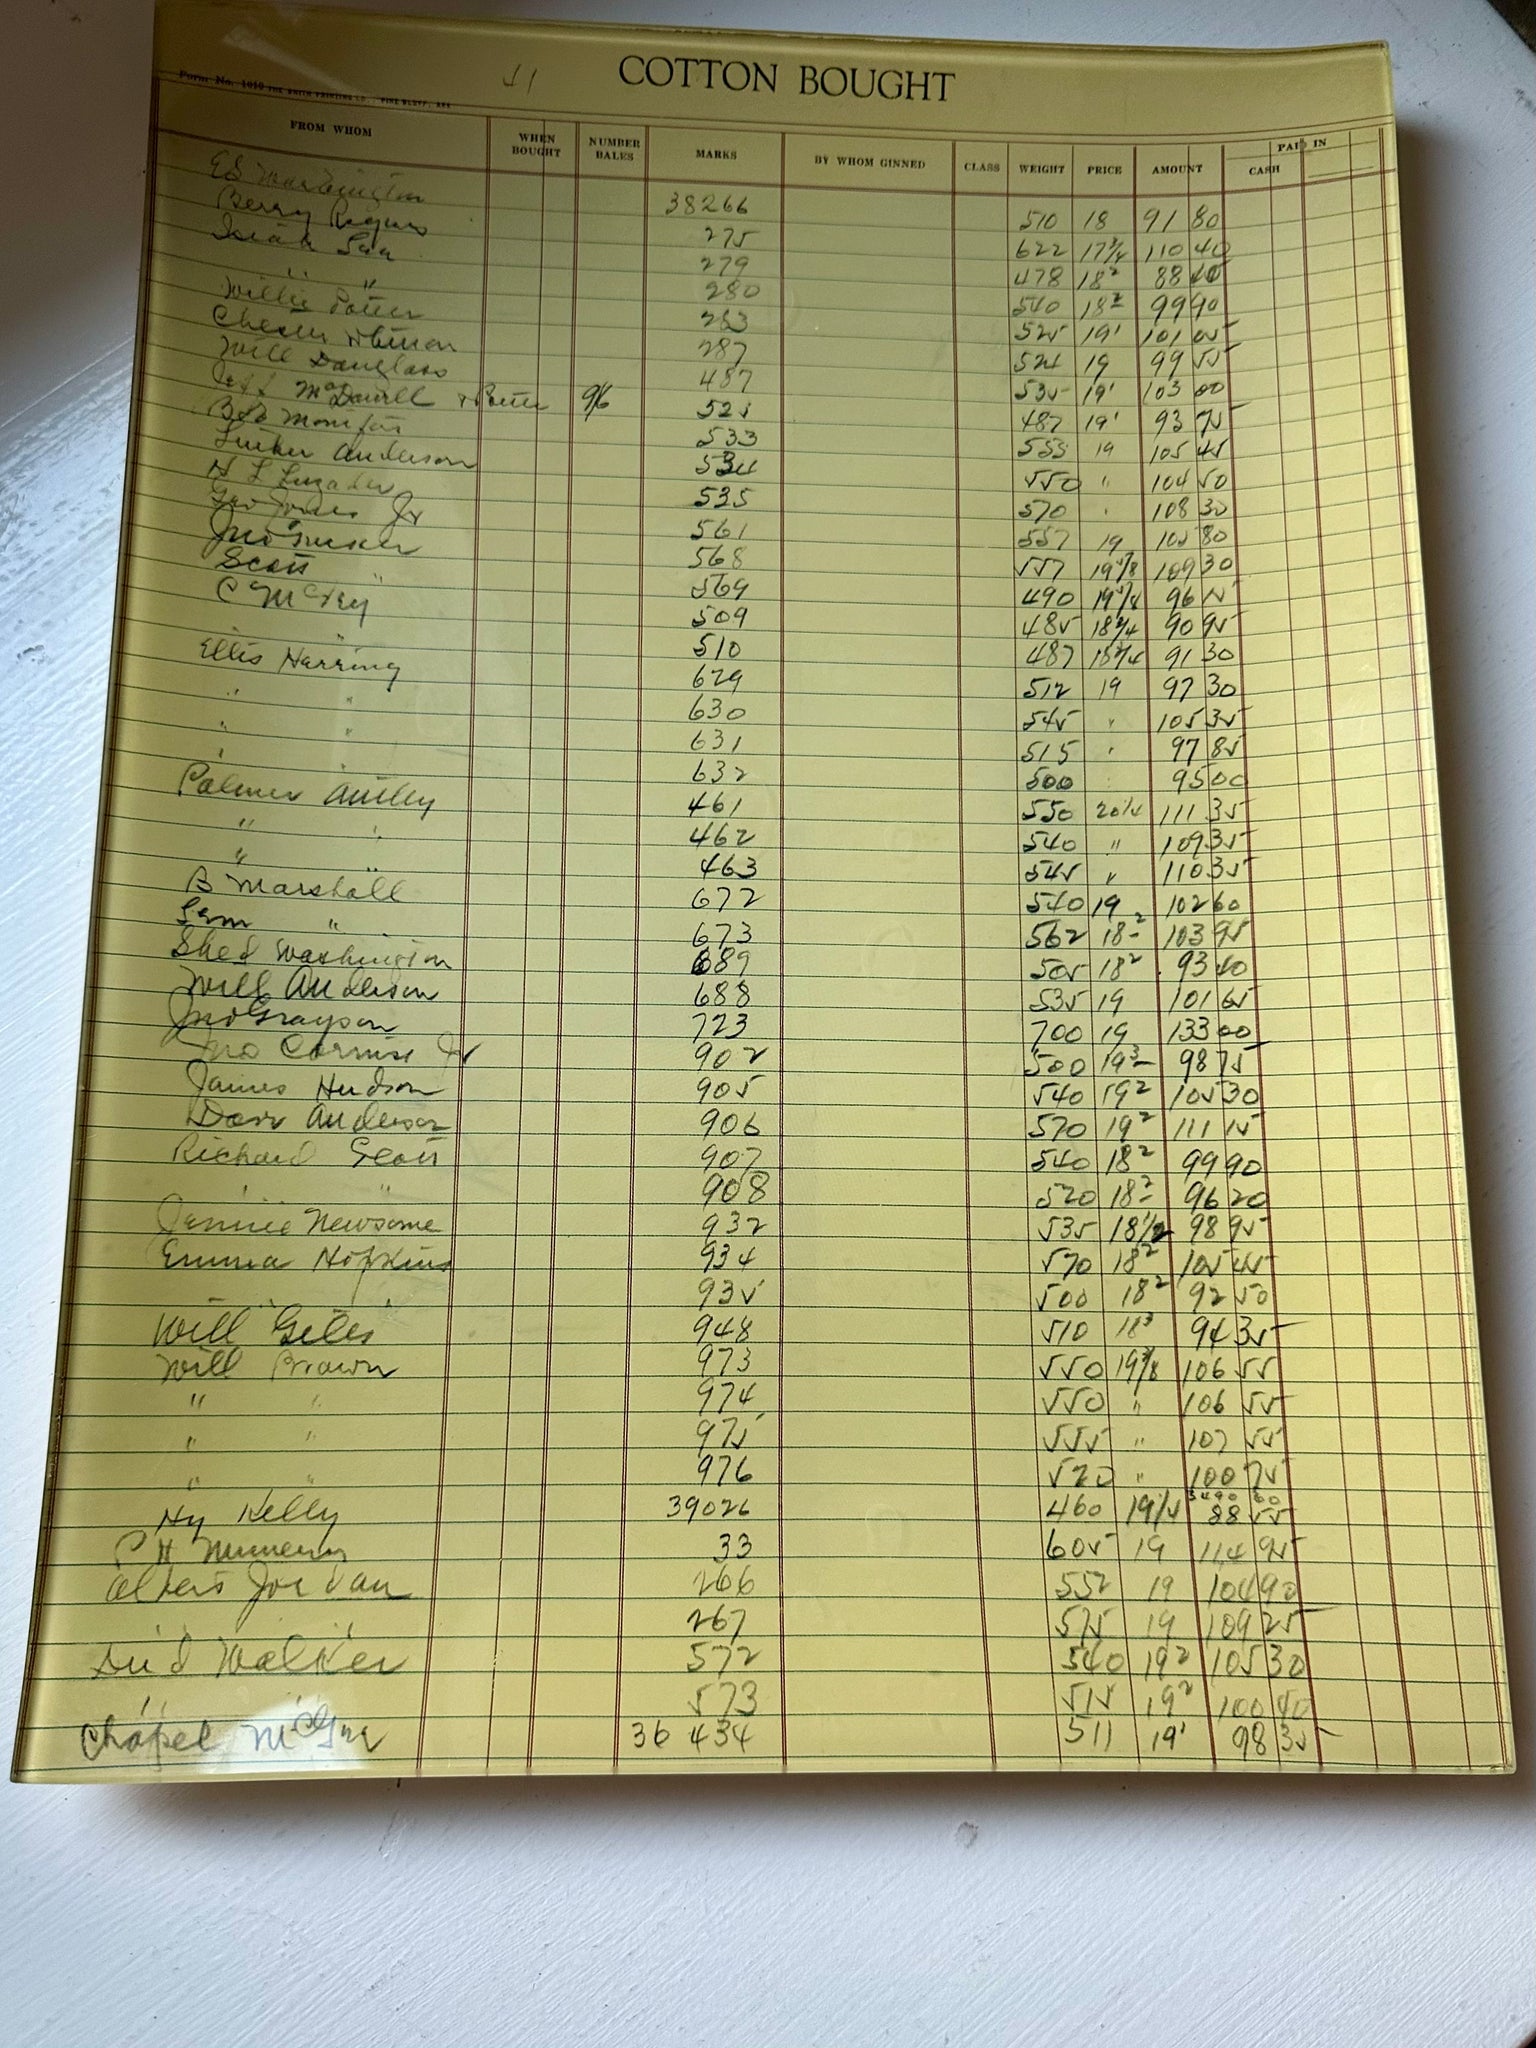 COTTON BOUGHT
Form No. 1010 THE SMITH PRINTING CO., PINE BLUFF, ARK
FROM WHOM WHEN BOUGHT NUMBER BALES MARKS BY WHOM GINNED CLASS WEIGHT PRICE AMOUNT PAID IN
CASH
Ed Washington 38266 510 18 91 80
Berry Rogers 275 622 17 3/4 110 40
Isiah 279 478 18² 88 40
" " 280 540 18² 99 90
Willie Potter 283 525 19' 101 05
Chester 287 524 19 99 55
Will Douglass 487 535 19' 103 00
McDowell & Potter 9/6 525 487 19' 93 75
Bob 533 555 19 105 45
Luther Anderson 534 550 " 104 50
H L 535 570 " 108 30
Geo Jones Jr 561 557 19 105 80
Jno Tucker 568 557 109 30
Scott " 569 490 96
C McKey 509 485 18 3/4 90 95
510 487 18 3/4 91 30
Ellis Herring 629 512 19 97 30
" " 630 545 " 105 35
" " 631 515 " 97 85
" 632 500 95 00
Palmer 461 550 20 1/4 111 35
" " 462 540 " 109 35
" 463 545 " 110 35
B Marshall 672 540 19 102 60
Sam " 673 562 18² 103 95
Shed Washington 689 505 18² 93 40
Will Anderson 688 535 19 101 65
Jno Grayson 723 700 19 133 00
Jno Jr 902 500 19³ 98 75
James Hudson 905 540 19² 105 30
Dave Anderson 906 570 19² 111 15
Richard Scott 907 540 18² 99 90
" " 908 520 18² 96 20
Jennie Newsome 932 535 18 1/2 98 95
Emma Hopkins 934 570 18² 105 45
" " 935 500 18² 92 50
Will Giles 948 510 18³ 94 35
Will Brown 973 550 19 3/8 106 55
" " 974 550 " 106 55
" " 975 555 " 107 55
" " 976 520 " 100 75
Hy Kelly 39026 460 19 1/4 88 55
P H 33 605 19 114 95
Albert Jordan 266 552 19 104 90
" " 267 575 19 109 25
Walker 572 540 19² 105 30
" " 573 515 19² 100 40
Chapel McGee 36 434 511 19' 98 35